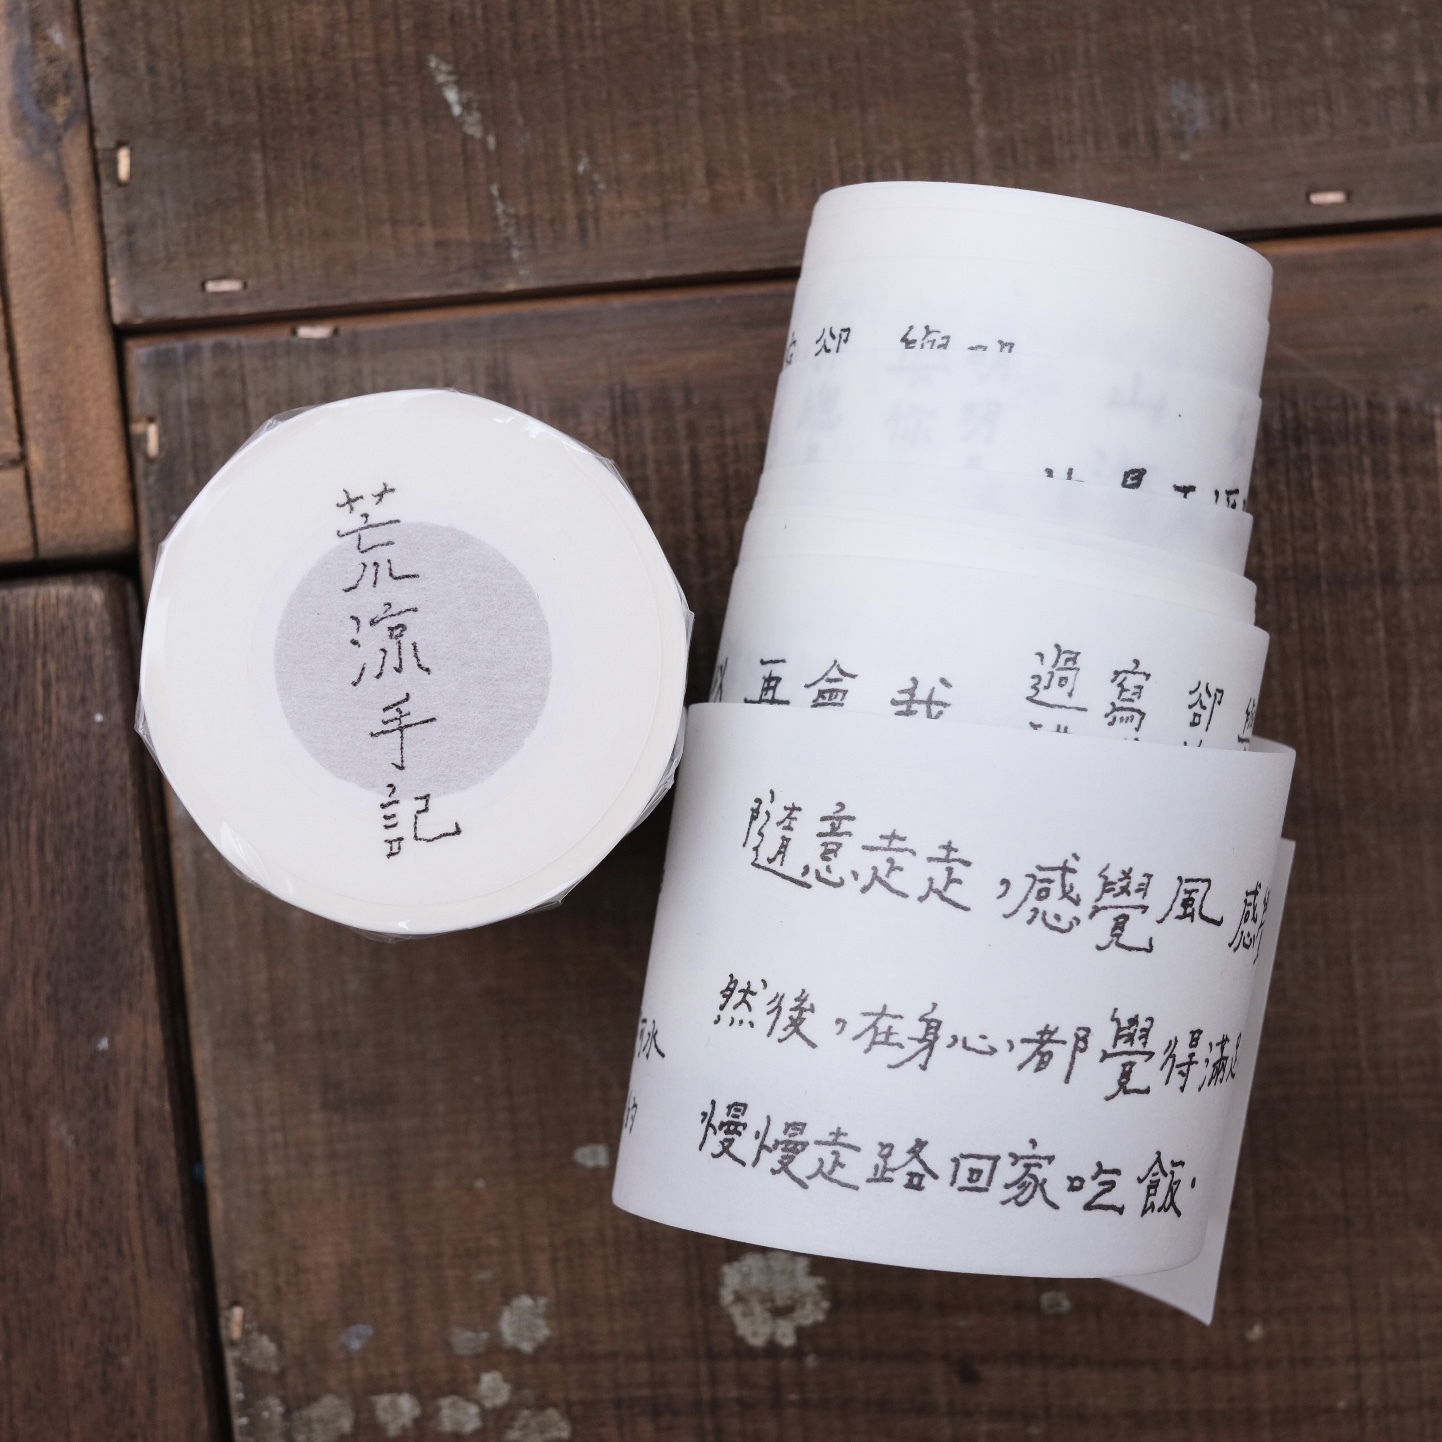 荒涼手記
卻
再 盒 我 過 寫 卻
隨意走走，感覺風 感覺
然後，在身心，都覺得滿足
慢慢走路回家吃飯.